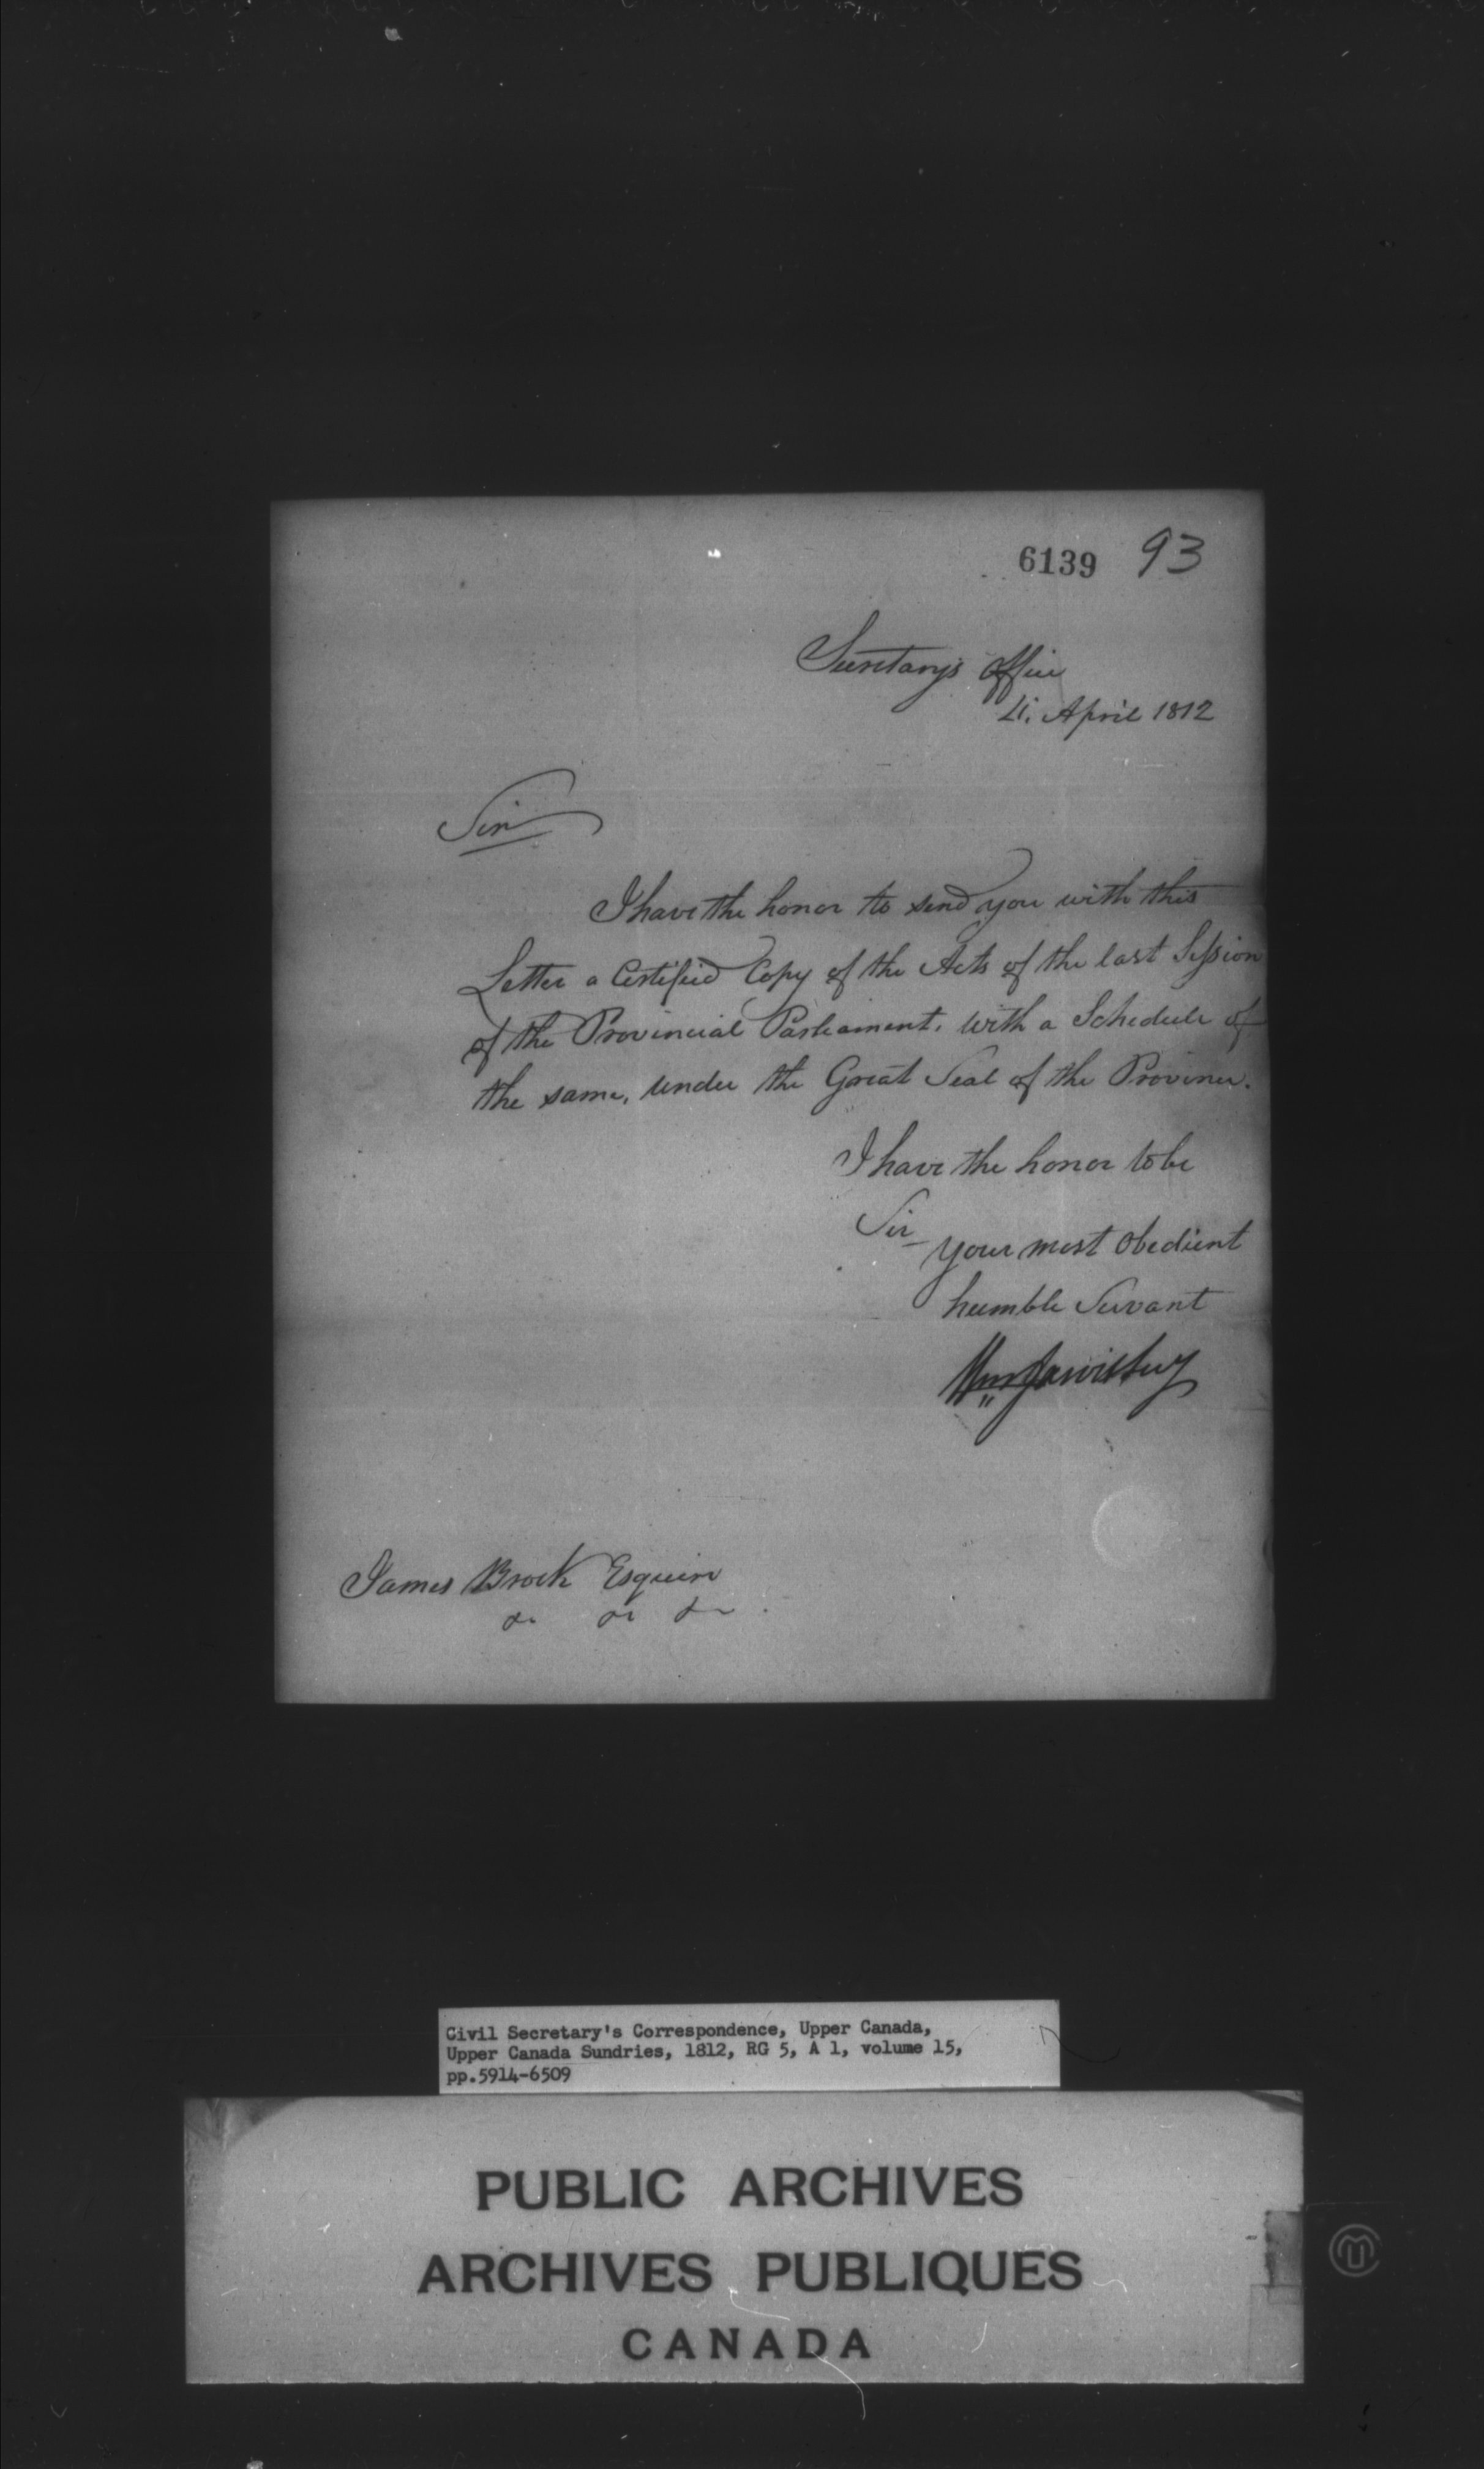 6139 93
Secretary's Office
4. April 1812
Sir
I have the honor to send you with this
Letter a Certified Copy of the Acts of the last Session
of the Provincial Parliament, with a Schedule of
the same, under the Great Seal of the Province.
I have the honor to be
Sir
your most Obedient
humble Servant
Wm Jarvis Secy
James Brock Esquire
&c &c &c
Civil Secretary's Correspondence, Upper Canada,
Upper Canada Sundries, 1812, RG 5, A 1, volume 15,
pp.5914-6509
PUBLIC ARCHIVES
ARCHIVES PUBLIQUES
CANADA